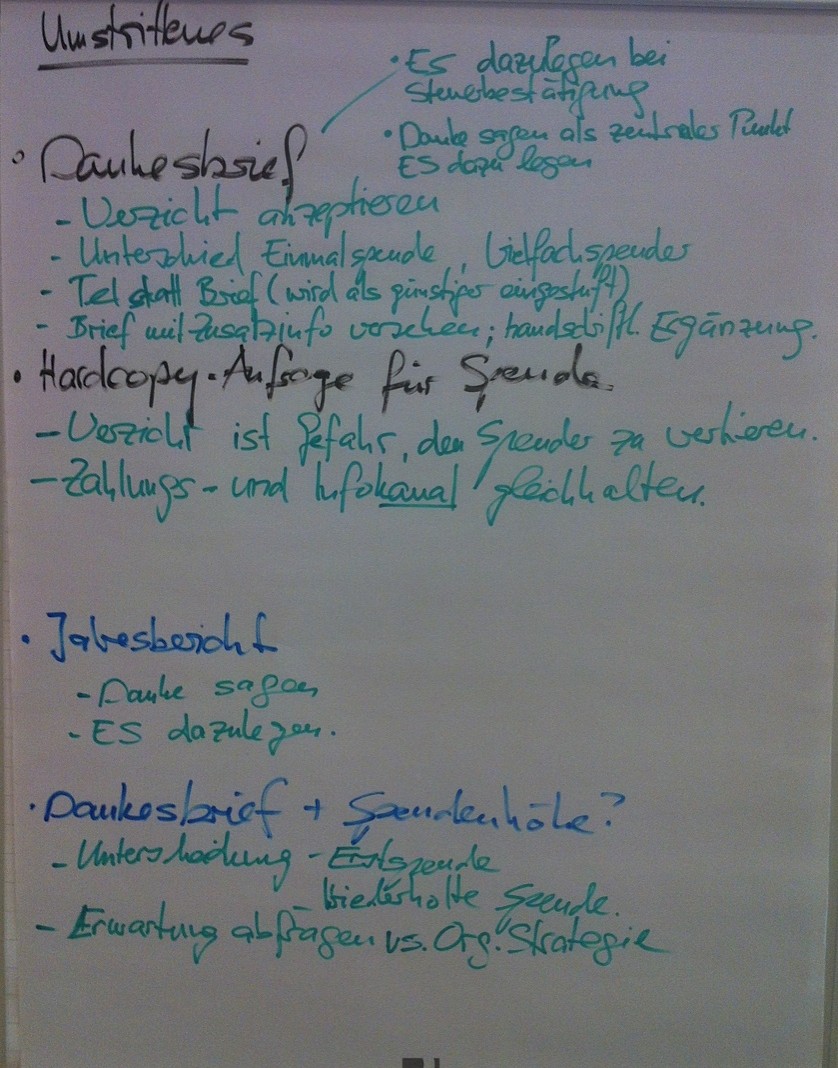 Umstrittenes
• Es dazulegen bei
Steuerbestätigung
• Danke sagen als zentraler Punkt
ES dazu legen
• Dankesbrief
- Verzicht akzeptieren
- Unterschied Einmalspende, Vielfachspender
- Tel statt Brief (wird als günstiger eingestuft)
- Brief mit Zusatzinfo versehen; handschriftl. Ergänzung.
• Hardcopy-Anfrage für Spende.
- Verzicht ist Gefahr, den Spender zu verlieren.
- Zahlungs- und Infokanal gleichhalten.
• Jahresbericht
- Danke sagen
- ES dazulegen.
• Dankesbrief + Spendenhöhe?
- Unterscheidung - Erstspende
- Wiederholte Spende.
- Erwartung abfragen vs. Org. Strategie